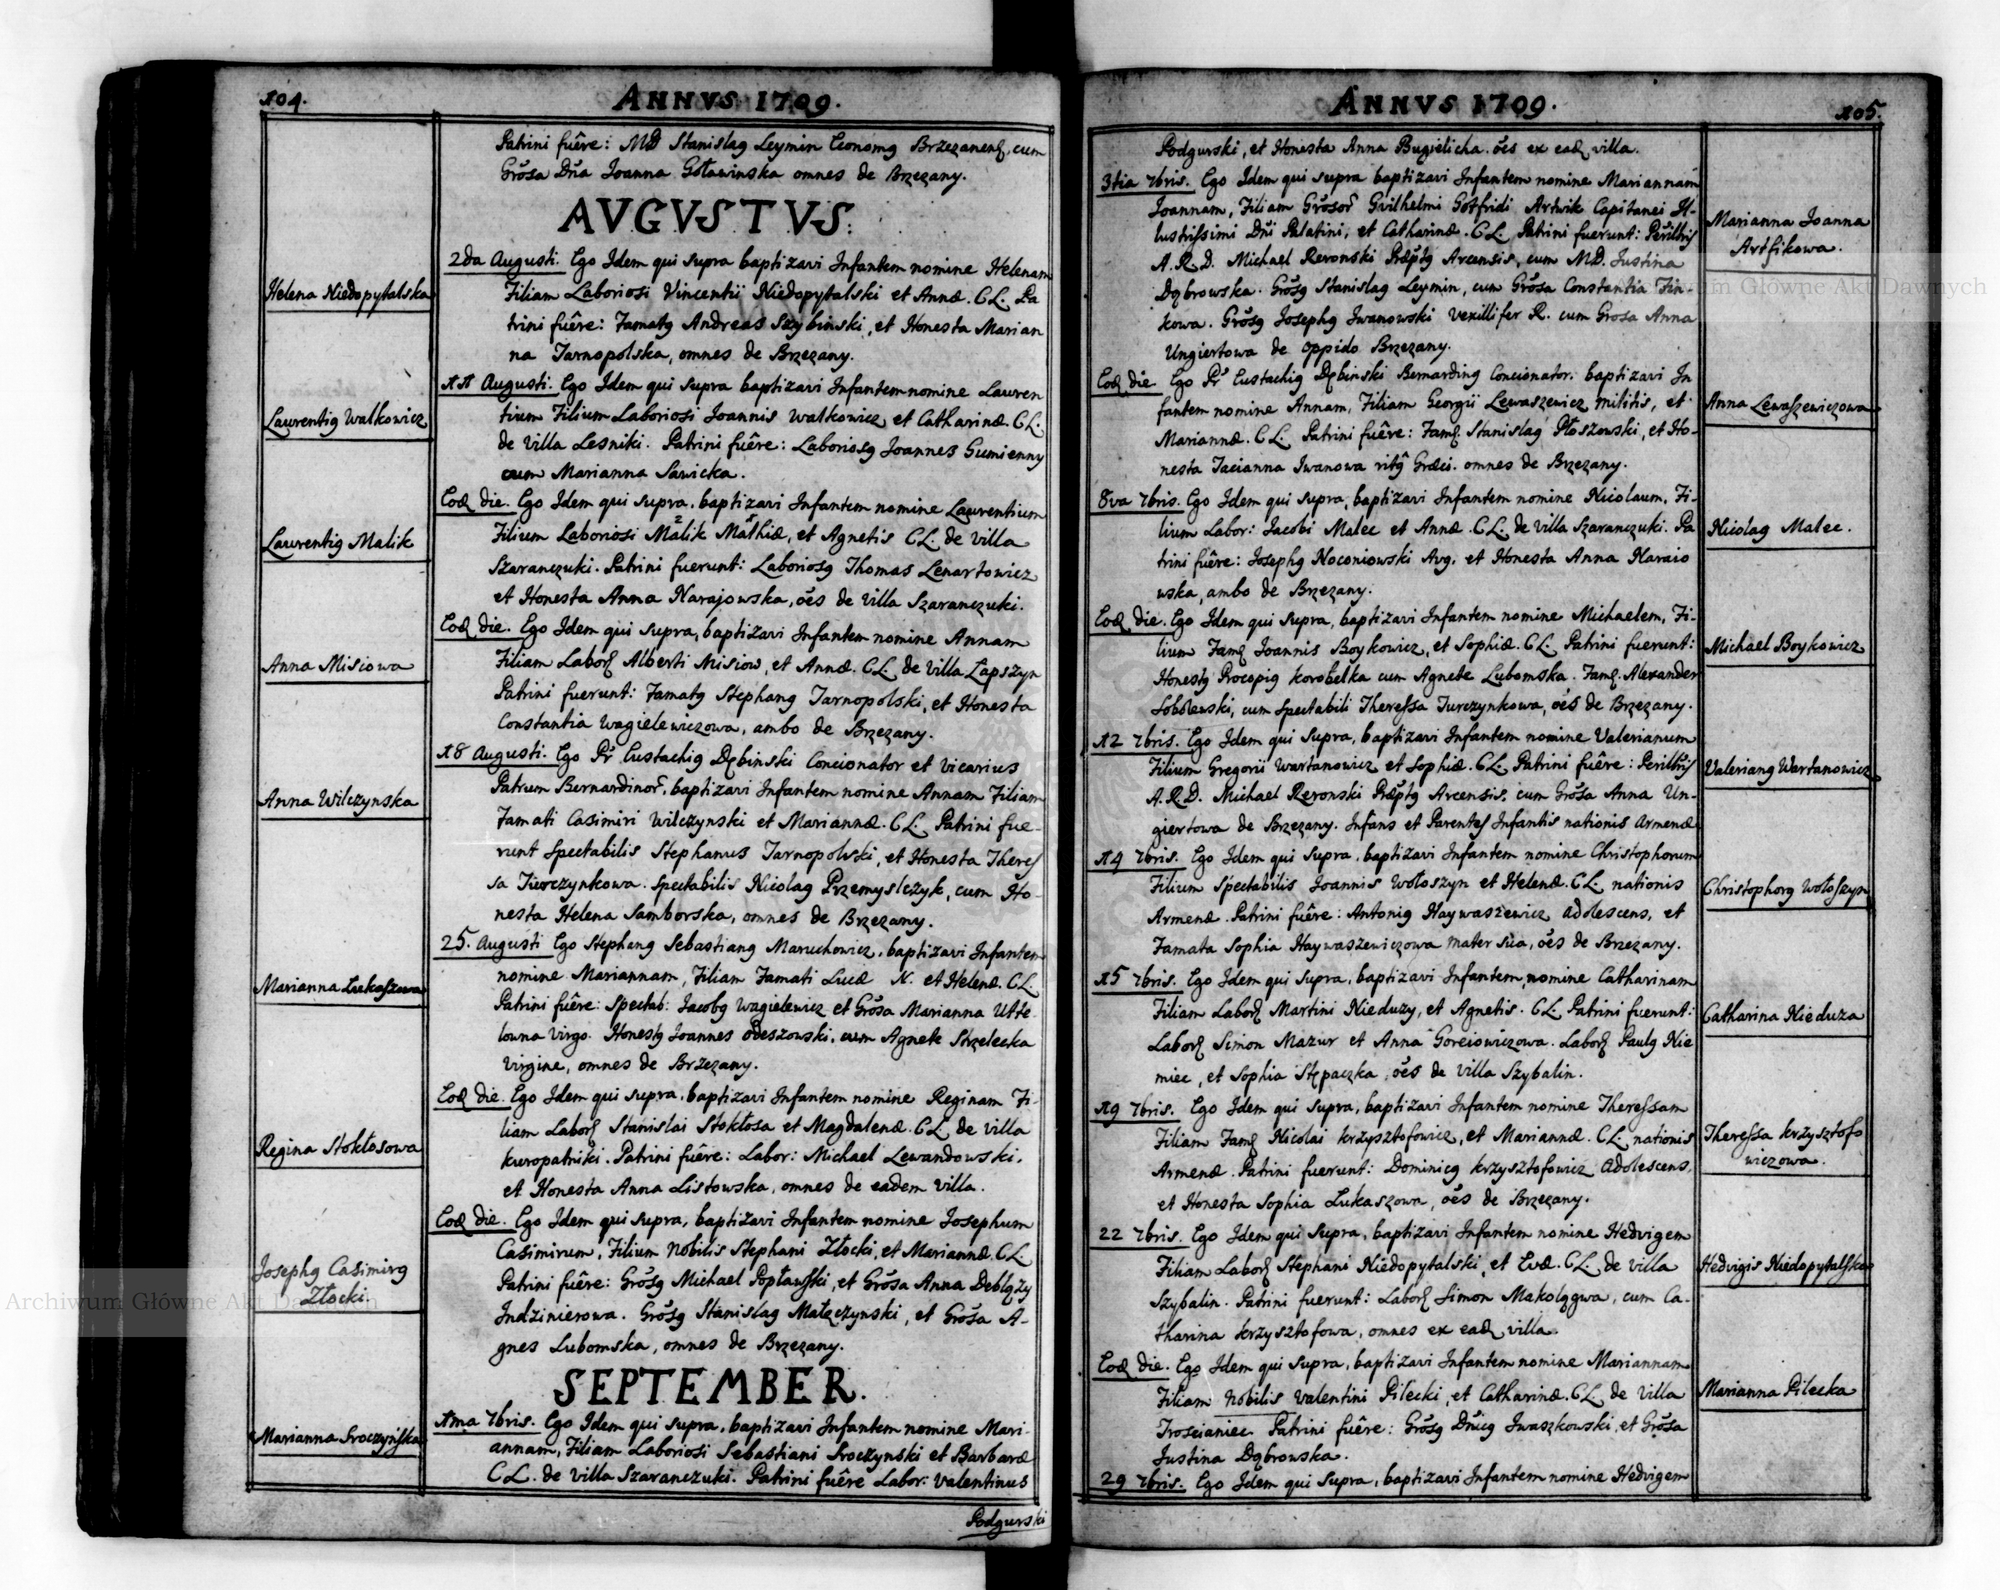 104.
ANNVS 1709.
Patrini fuêre: MD Stanislaꝯ Leymin Œconomꝯ Brzeżanenꝭ, cum
Grősa Dña Joanna Goławinska omnes de Brzeżany.
AVGVSTVS:
Helena Niedopytalska
2da Augusti. Ego Idem qui supra baptizavi Infantem nomine Helenam
Filiam Laboriosi Vincentii Niedopytalski et Annæ. C.L. Pa
trini fuêre: Famatꝯ Andreas Szybinski, et Honesta Marian
na Tarnopolska, omnes de Brzeżany.
Laurentiꝯ Walkowicz
11 Augusti. Ego Idem qui supra baptizavi Infantem nomine Lauren
tium Filium Laboriosi Joannis Walkowicz et Catharinæ. C.L.
de Villa Lesniki. Patrini fuêre: Laboriosꝯ Joannes Gumienny
cum Marianna Sawicka.
Laurentiꝯ Malik
Eoꝺ die. Ego Idem qui supra, baptizavi Infantem nomine Laurentium
Filium Laboriosi Malik Mathiæ, et Agnetis C.L. de villa
Szaranczuki. Patrini fuerunt: Laboriosꝯ Thomas Lenartowicz
et Honesta Anna Narajowska, oẽs de villa Szaranczuki.
Anna Misiowa
Eoꝺ die. Ego Idem qui supra, baptizavi Infantem nomine Annam
Filiam Laborꝭ Alberti Misiow, et Annæ. C.L. de villa Łapszyn
Patrini fuerunt: Famatꝯ Stephanꝯ Tarnopolski, et Honesta
Constantia Wagielewiczowa, ambo de Brzeżany.
Anna Wilczynska
18 Augusti. Ego Pr̃ Eustachiꝯ Dębinski Concionator et Vicarius
Patrum Bernardinoř, baptizavi Infantem nomine Annam Filiam
Famati Casimiri Wilczynski et Mariannæ. C.L. Patrini fue-
runt Spectabilis Stephanus Tarnopolski, et Honesta Theres
sa Turczynkowa. Spectabilis Nicolaꝯ Przemyslczyk, cum Ho-
nesta Helena Samborska, omnes de Brzeżany.
Marianna Łukaszowa
25. Augusti Ego Stephanꝯ Sebastianꝯ Maruchowicz, baptizavi Infantem
nomine Mariannam, Filiam Famati Lucæ N. et Helenæ C.L.
Patrini fuêre: Spectab: Jacobꝯ Wagielewicz et Grősa Marianna Utte-
lowna virgo. Honestꝯ Joannes Odeszowski, cum Agnete Strzelecka
virgine, omnes de Brzeżany.
Regina Stokłosowa
Eoꝺ die. Ego Idem qui supra, baptizavi Infantem nomine Reginam Fi-
liam Laborꝭ Stanislai Stokłosa et Magdalenæ. C.L. de villa
Kuropatniki. Patrini fuêre: Labor: Michael Lewandowski,
et Honesta Anna Listowska, omnes de eadem villa.
Josephꝯ Casimirꝯ
Złocki.
Eoꝺ die. Ego Idem qui supra, baptizavi Infantem nomine Josephum
Casimirum, Filium Nobilis Stephani Złocki, et Mariannæ. C.L.
Patrini fuêre: Grősꝯ Michael Popławski, et Grősa Anna Deblęży
Indzinierowa. Grősꝯ Stanislaꝯ Małęczynski, et Grősa A-
gnes Lubomska, omnes de Brzeżany.
SEPTEMBER.
Marianna Sroczyńska
1ma 7bris. Ego Idem qui supra, baptizavi Infantem nomine Mari-
annam, Filiam Laboriosi Sebastiani Sroczynski et Barbaræ
C.L. de villa Szaranczuki. Patrini fuêre Labor: Valentinus
Podgurski
ANNVS 1709.
105.
Podgurski, et Honesta Anna Bugielicha. oẽs ex eaꝺ villa.
Marianna Joanna
Artfikowa.
3tia 7bris. Ego Idem qui supra baptizavi Infantem nomine Mariannam
Joannam, Filiam Grősoř Gvilhelmi Gotfridi Artwik Capitanei Il-
lustrissimi Dñi Palatini, et Catharinæ. C.L. Patrini fuerunt: Perillris
A.R.D. Michael Revonski Præptꝯ Arcensis, cum MD. Justina
Dąbrowska. Grősꝯ Stanislaꝯ Leymin, cum Grősa Constantia Fin-
kowa. Grősꝯ Josephꝯ Iwanowski Vexillifer R. cum Grosa Anna
Ungiertowa de oppido Brzeżany.
Anna Lewaszewiczowa
Eoꝺ die. Ego Pr̃ Eustachiꝯ Dębinski Bernardinꝯ Concionator, baptizavi In
fantem nomine Annam, Filiam Georgii Lewaszewicz militis, et
Mariannæ. C.L. Patrini fuêre: Famꝭ Stanislaꝯ Płoszowski, et Ho-
nesta Tacianna Iwanowa ritꝯ Græci. omnes de Brzeżany.
Nicolaꝯ Malec.
8va 7bris. Ego Idem qui supra, baptizavi Infantem nomine Nicolaum, Fi-
lium Labor: Jacobi Malec et Annæ. C.L. de villa Szaranczuki. Pa
trini fuêre: Josephꝯ Noconiowski Avꝯ, et Honesta Anna Naraio
wska, ambo de Brzeżany.
Michael Boykowicz
Eoꝺ die. Ego Idem qui supra, baptizavi Infantem nomine Michaelem, Fi-
lium Famꝭ Joannis Boykowicz, et Sophiæ. C.L. Patrini fuerunt:
Honestꝯ Procopiꝯ Korobelka cum Agnete Lubomska. Famꝭ Alexander
Sobolewski, cum Spectabili Theressa Turczynkowa, oẽs de Brzeżany.
Valerianꝯ Wartanowicz
12 7bris. Ego Idem qui supra, baptizavi Infantem nomine Valerianum
Filium Gregorii Wartanowicz et Sophiæ. C.L. Patrini fuêre: Perillris
A.R.D. Michael Revonski Præptꝯ Arcensis, cum Grősa Anna Un-
giertowa de Brzeżany. Infans et Parentes Infantis nationis Armenæ
Christophorꝯ Wołoszyn
14 7bris. Ego Idem qui supra, baptizavi Infantem nomine Christophorum
Filium Spectabilis Joannis Wołoszyn et Helenæ. C.L. nationis
Armenæ. Patrini fuêre: Antoniꝯ Haywaszewicz adolescens, et
Famata Sophia Haywaszewiczowa mater sua, oẽs de Brzeżany.
Catharina Nieduza
15 7bris. Ego Idem qui supra, baptizavi Infantem, nomine Catharinam
Filiam Laborꝭ Martini Nieduzy, et Agnetis. C.L. Patrini fuerunt:
Laborꝭ Simon Mazur et Anna Goreiowiczowa. Laborꝭ Paulꝯ Nie
miec, et Sophia Stępaczka, oẽs de villa Szybalin.
Theressa Krzysztofo
wiczowa.
19 7bris. Ego Idem qui supra, baptizavi Infantem nomine Theressam
Filiam Famꝭ Nicolai Krzysztofowicz, et Mariannæ. C.L. nationis
Armenæ. Patrini fuerunt: Dominicꝯ Krzysztofowicz Adolescens,
et Honesta Sophia Łukaszowa, oẽs de Brzeżany.
Hedvigis Niedopytalska
22 7bris. Ego Idem qui supra, baptizavi Infantem nomine Hedvigem
Filiam Laborꝭ Stephani Niedopytalski, et Evæ. C.L. de villa
Szybalin. Patrini fuerunt: Laborꝭ Simon Makolągwa, cum Ca-
tharina Krzysztofowa, omnes ex eaꝺ villa.
Marianna Pilecka
Eoꝺ die. Ego Idem qui supra, baptizavi Infantem nomine Mariannam
Filiam Nobilis Valentini Pilecki, et Catharinæ. C.L. de villa
Troscianiec. Patrini fuêre: Grősꝯ Dñicꝯ Iwaszkowski, et Grősa
Justina Dąbrowska.
29 7bris. Ego Idem qui supra, baptizavi Infantem nomine Hedvigem
Archiwum Główne Akt Dawnych
Archiwum Główne Akt Dawnych